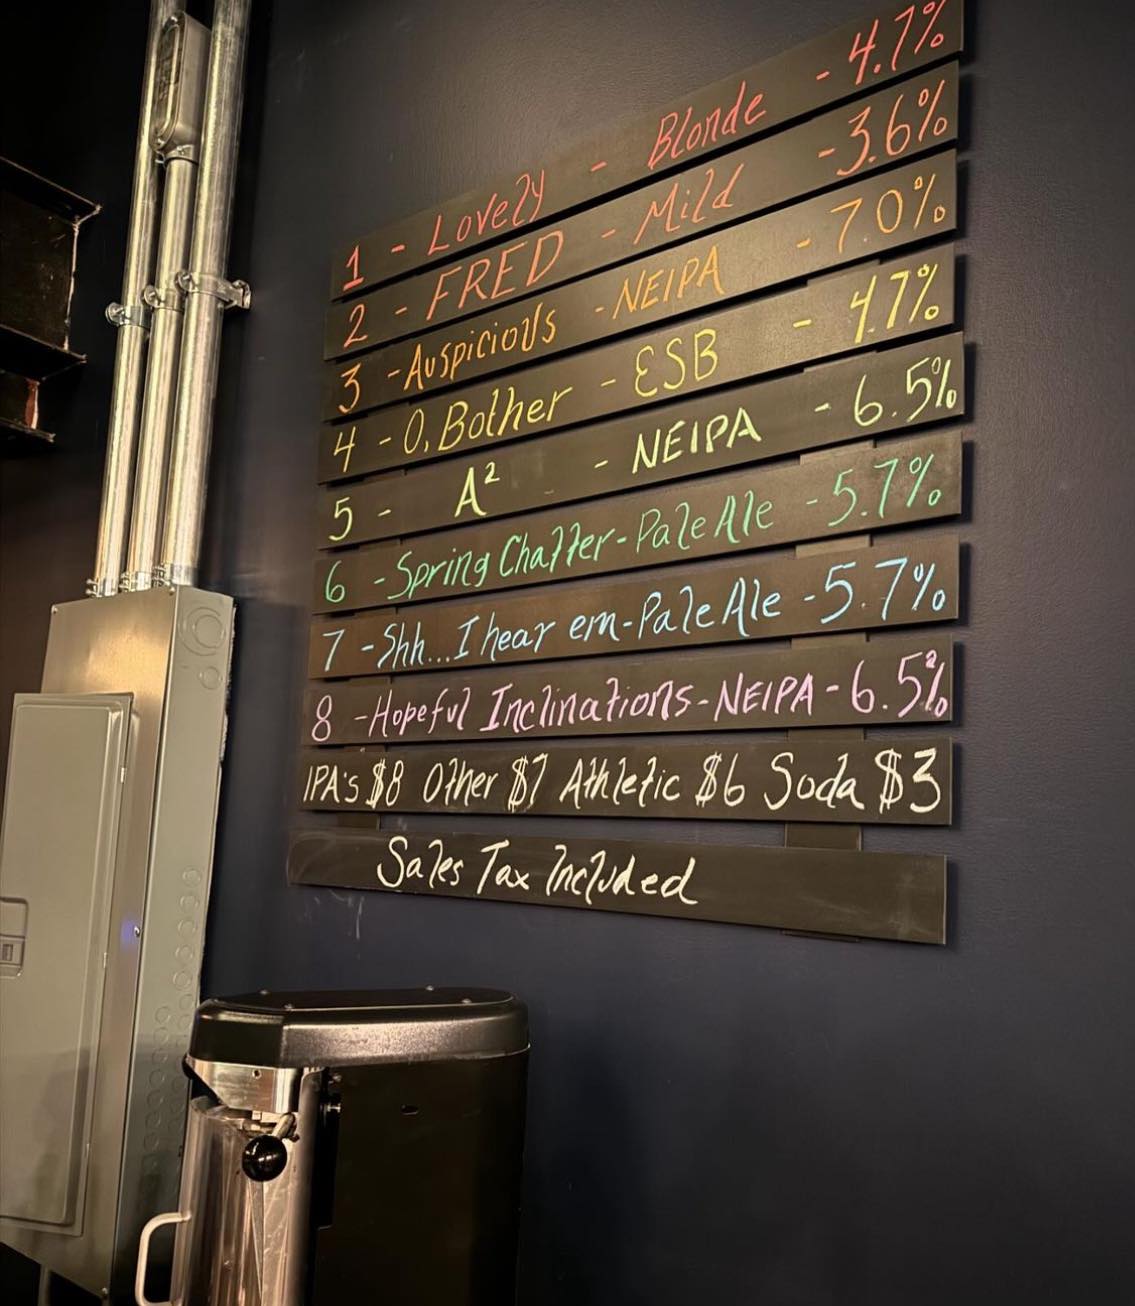 1 - Lovely - Blonde - 4.7%
2 - FRED - Mild - 3.6%
3 - Auspicious - NEIPA - 7.0%
4 - O, Bother - ESB - 4.7%
5 - A² - NEIPA - 6.5%
6 - Spring Chatter - Pale Ale - 5.7%
7 - Shh... I hear em - Pale Ale - 5.7%
8 - Hopeful Inclinations - NEIPA - 6.5%
IPA's $8 Other $7 Athletic $6 Soda $3
Sales Tax Included